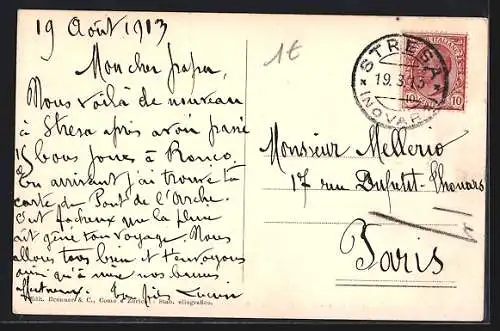 19 Août 1913
Mon cher papa,
Nous voilà de nouveau
à Stresa après avoir passé
15 bons jours à Ronco.
En arrivant j'ai trouvé ta
carte de Pont de l'Arche.
C'est fâcheux que la pluie
ait gêné ton voyage. Nous
allons tous bien et t'envoyons
ainsi qu'à nos bonnes
affectueux. Ton fils Lucien
Edit. Brunner & C., Como e Zürich. Stab. eliografico.
1€
STRESA
19.8.13
(NOVARA)
10 10
Monsieur Mellerio
17 rue Dufetit-Thouars
Paris